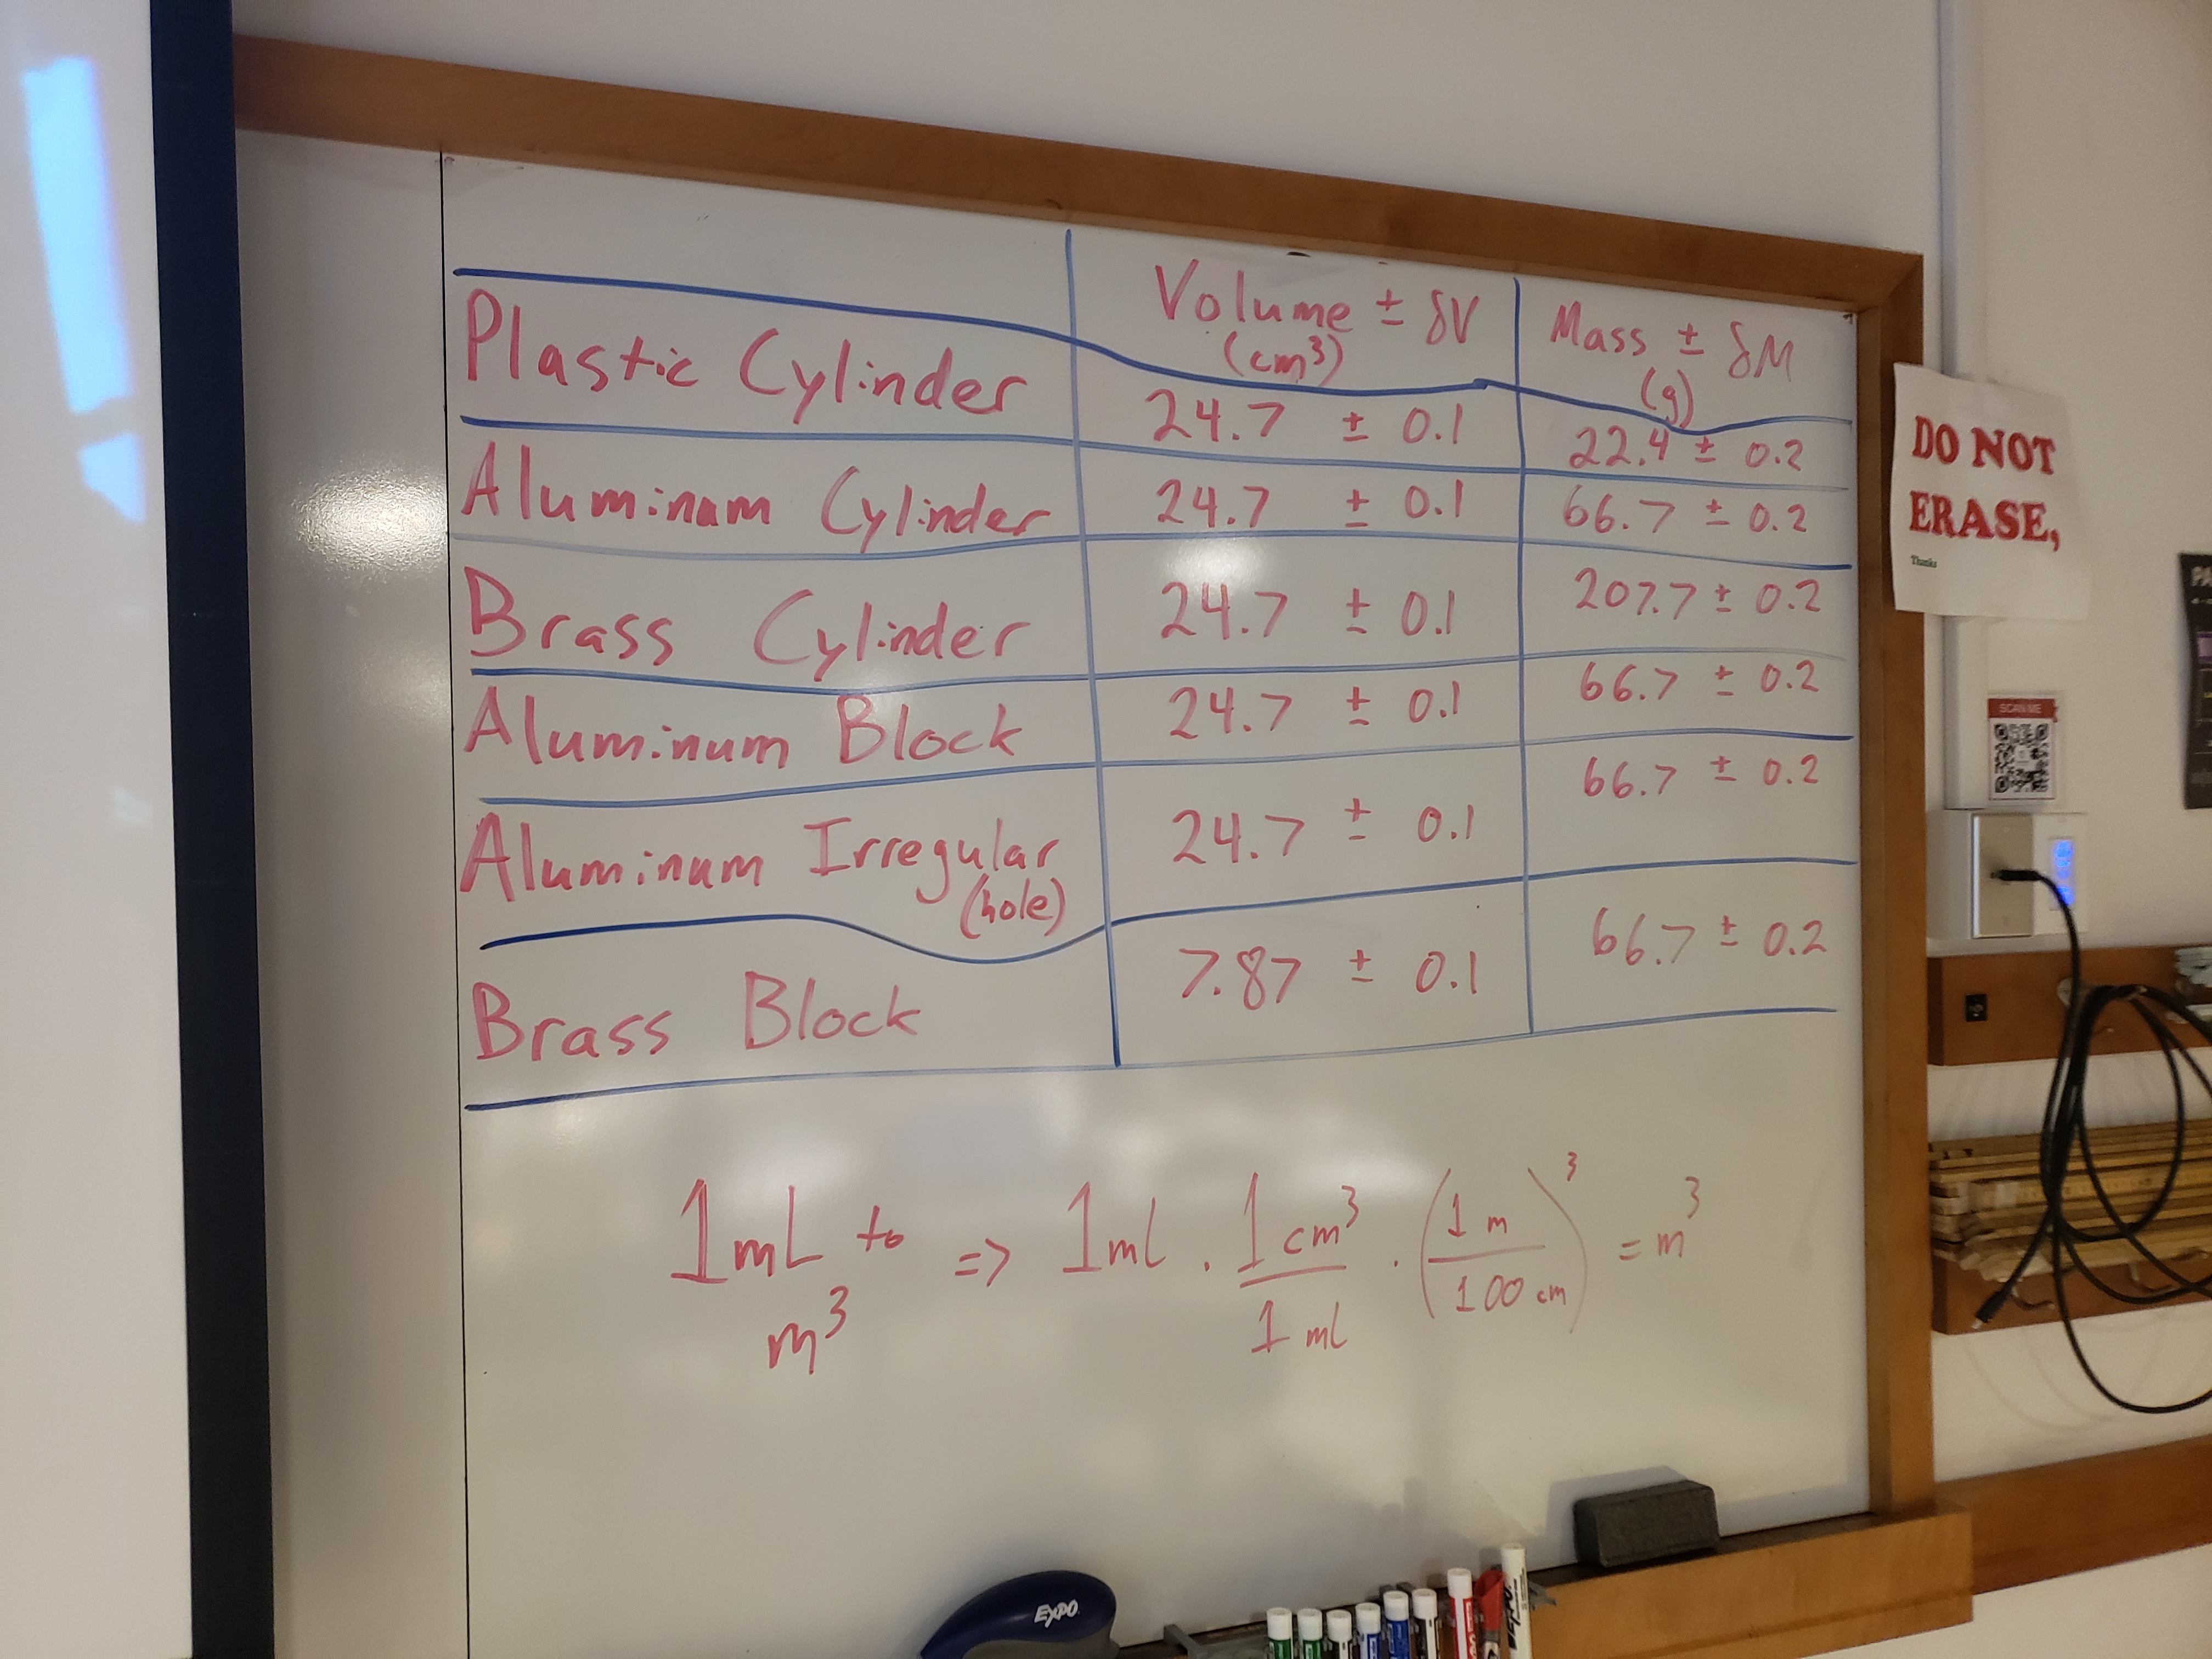 Volume ± δV Mass ± δM
(cm³) (g)
Plastic Cylinder 24.7 ± 0.1 22.4 ± 0.2
Aluminum Cylinder 24.7 ± 0.1 66.7 ± 0.2
Brass Cylinder 24.7 ± 0.1 207.7 ± 0.2
Aluminum Block 24.7 ± 0.1 66.7 ± 0.2
Aluminum Irregular 24.7 ± 0.1 66.7 ± 0.2
(hole)
Brass Block 7.87 ± 0.1 66.7 ± 0.2
1mL to m³ => 1ml · 1 cm³ / 1 ml · (1 m / 100 cm)³ = m³
DO NOT
ERASE,
Thanks
SCAN ME
EXPO